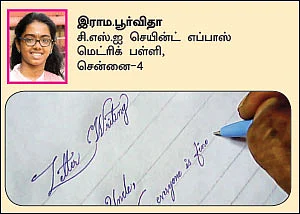 இராம.பூர்விதா
சி.எஸ்.ஐ செயின்ட் எப்பாஸ்
மெட்ரிக் பள்ளி,
சென்னை-4
Letter Writing
Uncle,
everyone is fine